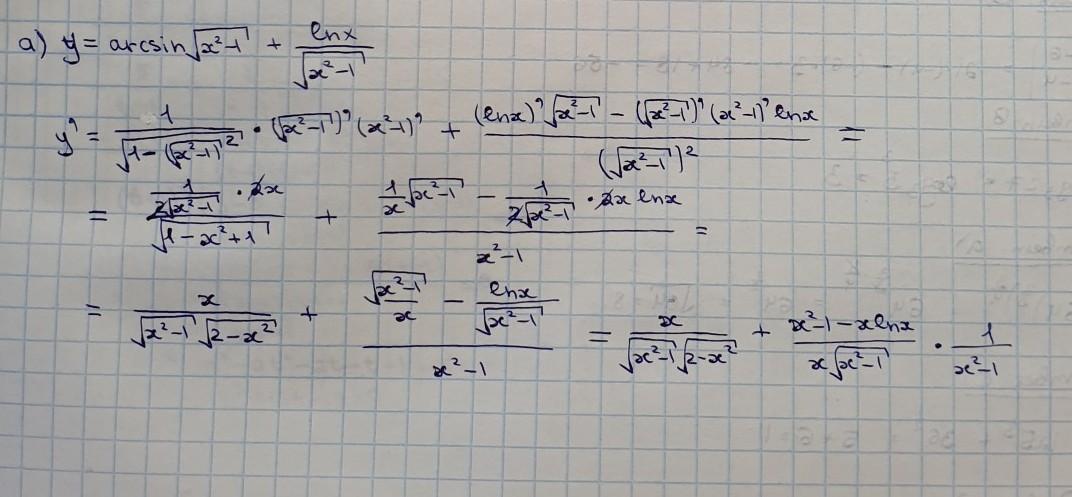 a) y = arcsin√(x²-1) + lnx/√(x²-1)
y' = 1/√(1-(√(x²-1))²) · (√(x²-1))' (x²-1)' + ((lnx)'√(x²-1) - (√(x²-1))' (x²-1)' lnx)/(√(x²-1))² =
= (1/(2√(x²-1)) · 2x)/√(1-x²+1) + (1/x √(x²-1) - 1/(2√(x²-1)) · 2x lnx)/(x²-1) =
= x/(√(x²-1) √(2-x²)) + (√(x²-1)/x - lnx/√(x²-1))/(x²-1) = x/(√(x²-1) √(2-x²)) + (x²-1-xlnx)/(x√(x²-1)) · 1/(x²-1)